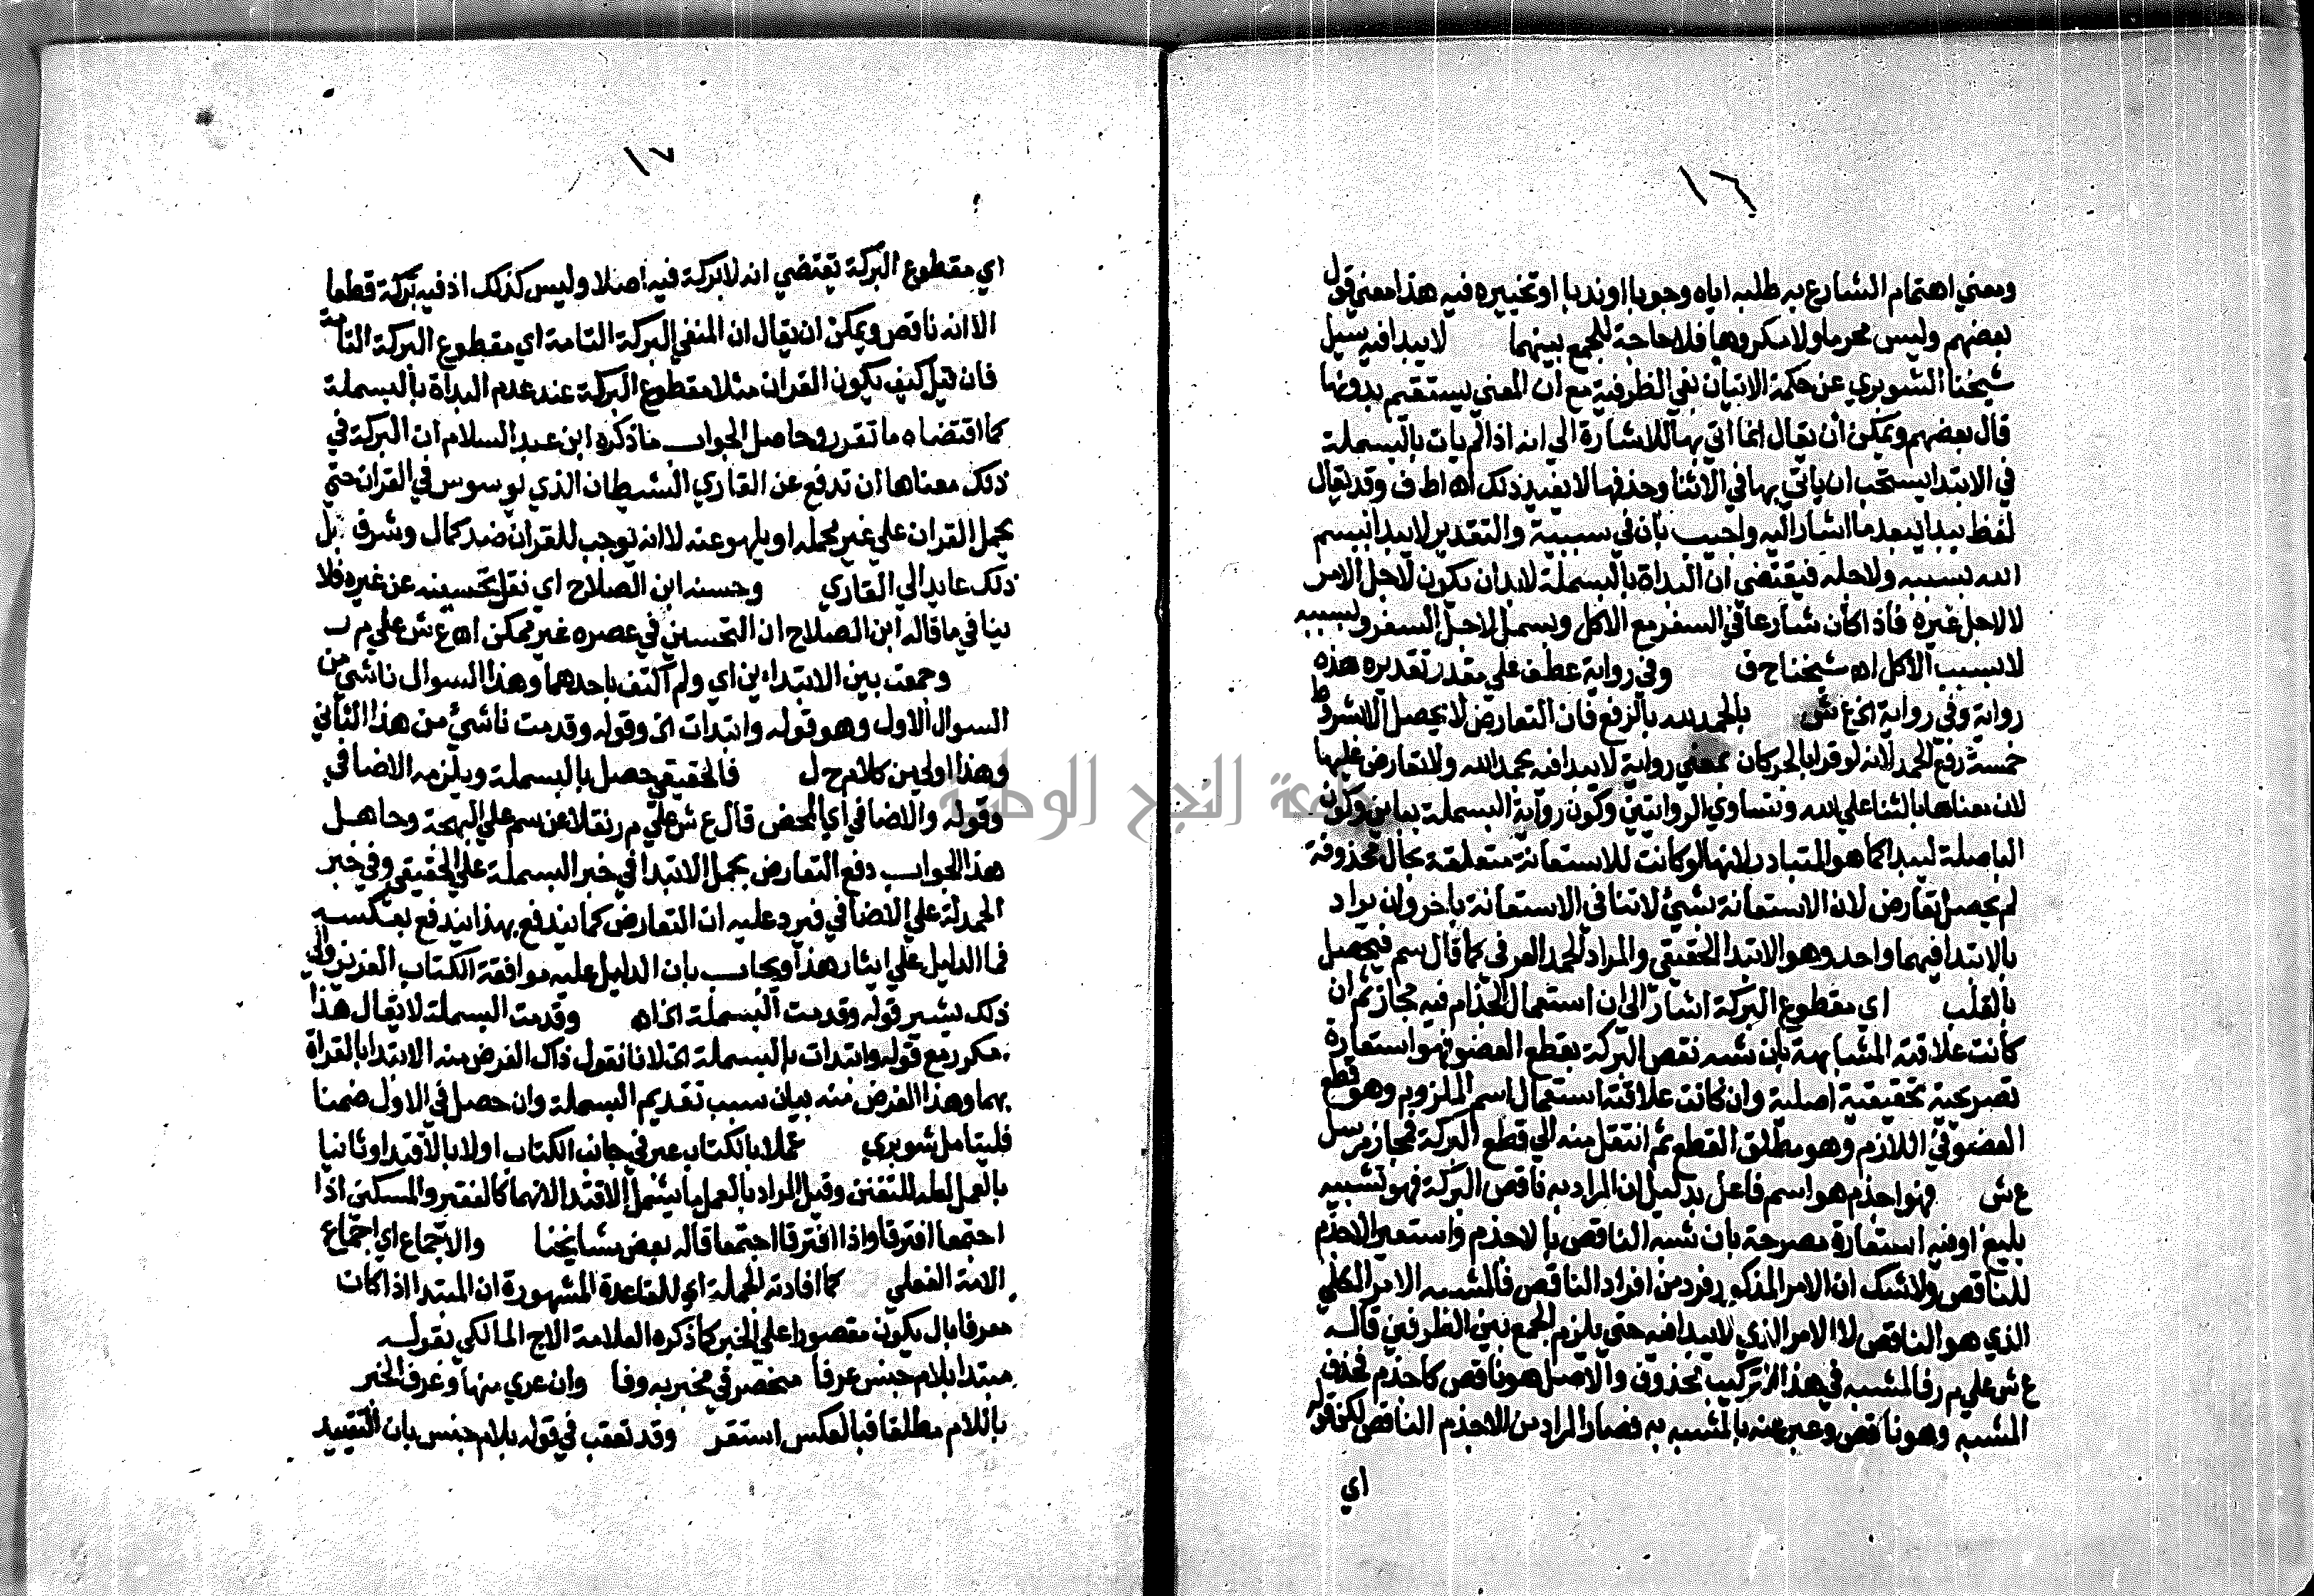 ١٦
ومعني اهتمام الشارع به طلبه اياه وجوبا او ندبا او تخييره فيه هذا معني قول
بعضهم وليس محرما ولا مكروها فلا حاجة للجمع بينهما لا يبدا فيه سيل
شيخنا الشوبري عن حكمة الاتيان بفي الظرفية مع ان المعني يستقيم بدونها
قال بعضهم ويمكن أن يقال انما اتي بها للاشارة الي انه اذا لم يات بالبسملة
في الابتدا يستحب ان ياتي بها في الاثنا وحذفها لا يفيد ذلك اه اط ف وقد يقال
لفظ يبدا يبعد ما اشار اليه واجيب بان في سببية والتقدير لا يبدا ببسم
الله بسببه ولاجله فيقتضي ان البداة بالبسملة لابد ان يكون لاجل الامر
لا لاجل غيره فاذا كان شارعا في السفر مع الاكل ويسمل لاجل السفر ولسببه
لا بسبب الاكل اه شيخنا ح ف وفي رواية عطف علي مقدر تقديره هذه
رواية وفي رواية الخ ع ش بالحمد لله بالرفع فان التعارض لا يحصل الا بشروط
خمسة رفع الحمد لانه لو قرا بالجر كان بمعني رواية لا يبدا فيه بحمد الله ولا تعارض عليها
لان معناها بالثنا علي الله وتساوي الروايتين وكون رواية البسملة بباين وكون
الباصلة ليبدا كما هو المتبادر لانها لو كانت للاستعانة متعلقة بحال محذوفة
لم يحصل تعارض لان الاستعانة بشئ لا تنافي الاستعانة باخر وان يراد
بالابتدا فيهما واحد وهو الابتدا الحقيقي والمراد الحمد العرفي كما قال سم فيحصل
بالقلب اي مقطوع البركة اشار الي ان استعمال الجذام فيه مجاز ثم ان
كانت علاقته المشابهة بان شبه نقص البركة بقطع العضو فهو استعارة
تصريحية تحقيقية اصلية وان كانت علاقته استعمال اسم الملزوم وهو قطع
العضو في اللازم وهو مطلق القطع ثم انتقل منه الي قطع البركة فمجاز مرسل
ع ش وهو اجذم هو اسم فاعل بدليل ان المراد به ناقص البركة فهو تشبيه
بليغ او فيه استعارة مصرحة بان شبه الناقص بالاجذم واستعير الاجذم
للناقص ولا شك ان الامر المذكور فرد من افراد الناقص فالمشبه الامر الكلي
الذي هو الناقص لا الامر الذي لا يبدا فيه حتي يلزم الجمع بين الطرفين قاله
ع ش علي م ر فالمشبه في هذا التركيب محذوف والاصل هو ناقص كاجذم فحذف
المشبه وهو ناقص وعبر عنه بالمشبه به فصار المراد من الاجذم الناقص لكن قوله
اي
١٧
اي مقطوع البركة يقتضي انه لا بركة فيه اصلا وليس كذلك اذ فيه بركة قطعا
الا انه ناقص ويمكن ان يقال ان المنفي البركة التامة اي مقطوع البركة التامة
فان قيل كيف يكون القران مثلا مقطوع البركة عند عدم البداة بالبسملة
كما اقتضاه ما تقرر وحاصل الجواب ما ذكره ابن عبد السلام ان البركة في
ذلك معناها ان تدفع عن القاري الشيطان الذي يوسوس في القران حتي
يحمل القران علي غير محمله او يلهو عنه لا انه يوجب للقران ضد كمال وشرف بل
ذلك عايد الي القاري وحسنه ابن الصلاح اي نقل تحسينه عن غيره فلا
ينافي ما قاله ابن الصلاح ان التحسين في عصره غير ممكن اه ع ش علي م ر
وجمعت بين الابتداءين اي ولم اكتف باحدهما وهذا السوال ناشي من
السوال الاول وهو قوله وابتدات الخ وقوله وقدمت ناشئ من هذا الثاني
وهذا اولي من كلام ح ل فالحقيقي حصل بالبسملة ويلزمه الاضافي
وقوله والاضافي اي المحض قال ع ش علي م ر نقلا عن سم علي البهجة وحاصل
هذا الجواب دفع التعارض بحمل الابتدا في خبر البسملة علي الحقيقي وفي خبر
الحمدلة علي الاضافي فيرد عليه ان التعارض كما يندفع بهذا يندفع بعكسه
فما الدليل علي ايثار هذا ويجاب بان الدليل عليه موافقة الكتاب العزيز والي
ذلك يشير قوله وقدمت البسملة الخ اه وقدمت البسملة لا يقال هذا
مكرر مع قوله وابتدات بالبسملة الخ لانا نقول ذاك الغرض منه الابتدا بالقراة
بهما وهذا الغرض منه بيان سبب تقديم البسملة وان حصل في الاول ضمنا
فليتامل شوبري عملا بالكتاب عبر في جانب الكتاب اولا بالاقتدا وثانيا
بالعمل لعله للتفنن وقيل المراد بالعمل ما يشمل الاقتدا لانهما كالفقير والمسكين اذا
اجتمعا افترقا واذا افترقا اجتمعا قاله بعض مشايخنا والاجماع اي اجماع
الامة الفعلي كما افادته الجملة اي للقاعدة المشهورة ان المبتدا اذا كان
معرفا بال يكون مقصورا علي الخبر كما ذكره العلامة الاج المالكي بقوله
مبتدا بلام جنس عرفا منحصر في مخبر به وفا وان عري منها وعرف الخبر
باللام مطلقا فبالعكس استقر وقد تعقب في قوله بلام جنس بان التقييد